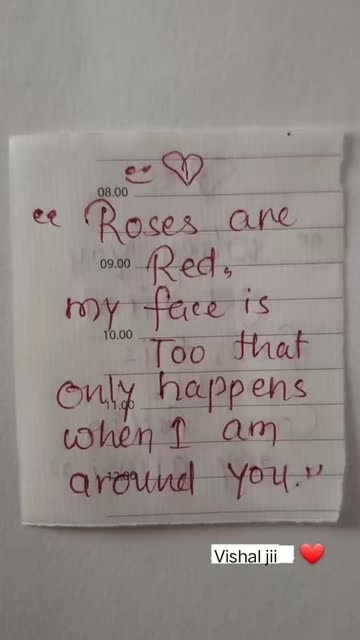 08.00
“ Roses are
09.00 Red,
my face is
10.00 Too that
only happens
11.00
when I am
12.00
around you.”
Vishal jii ❤️